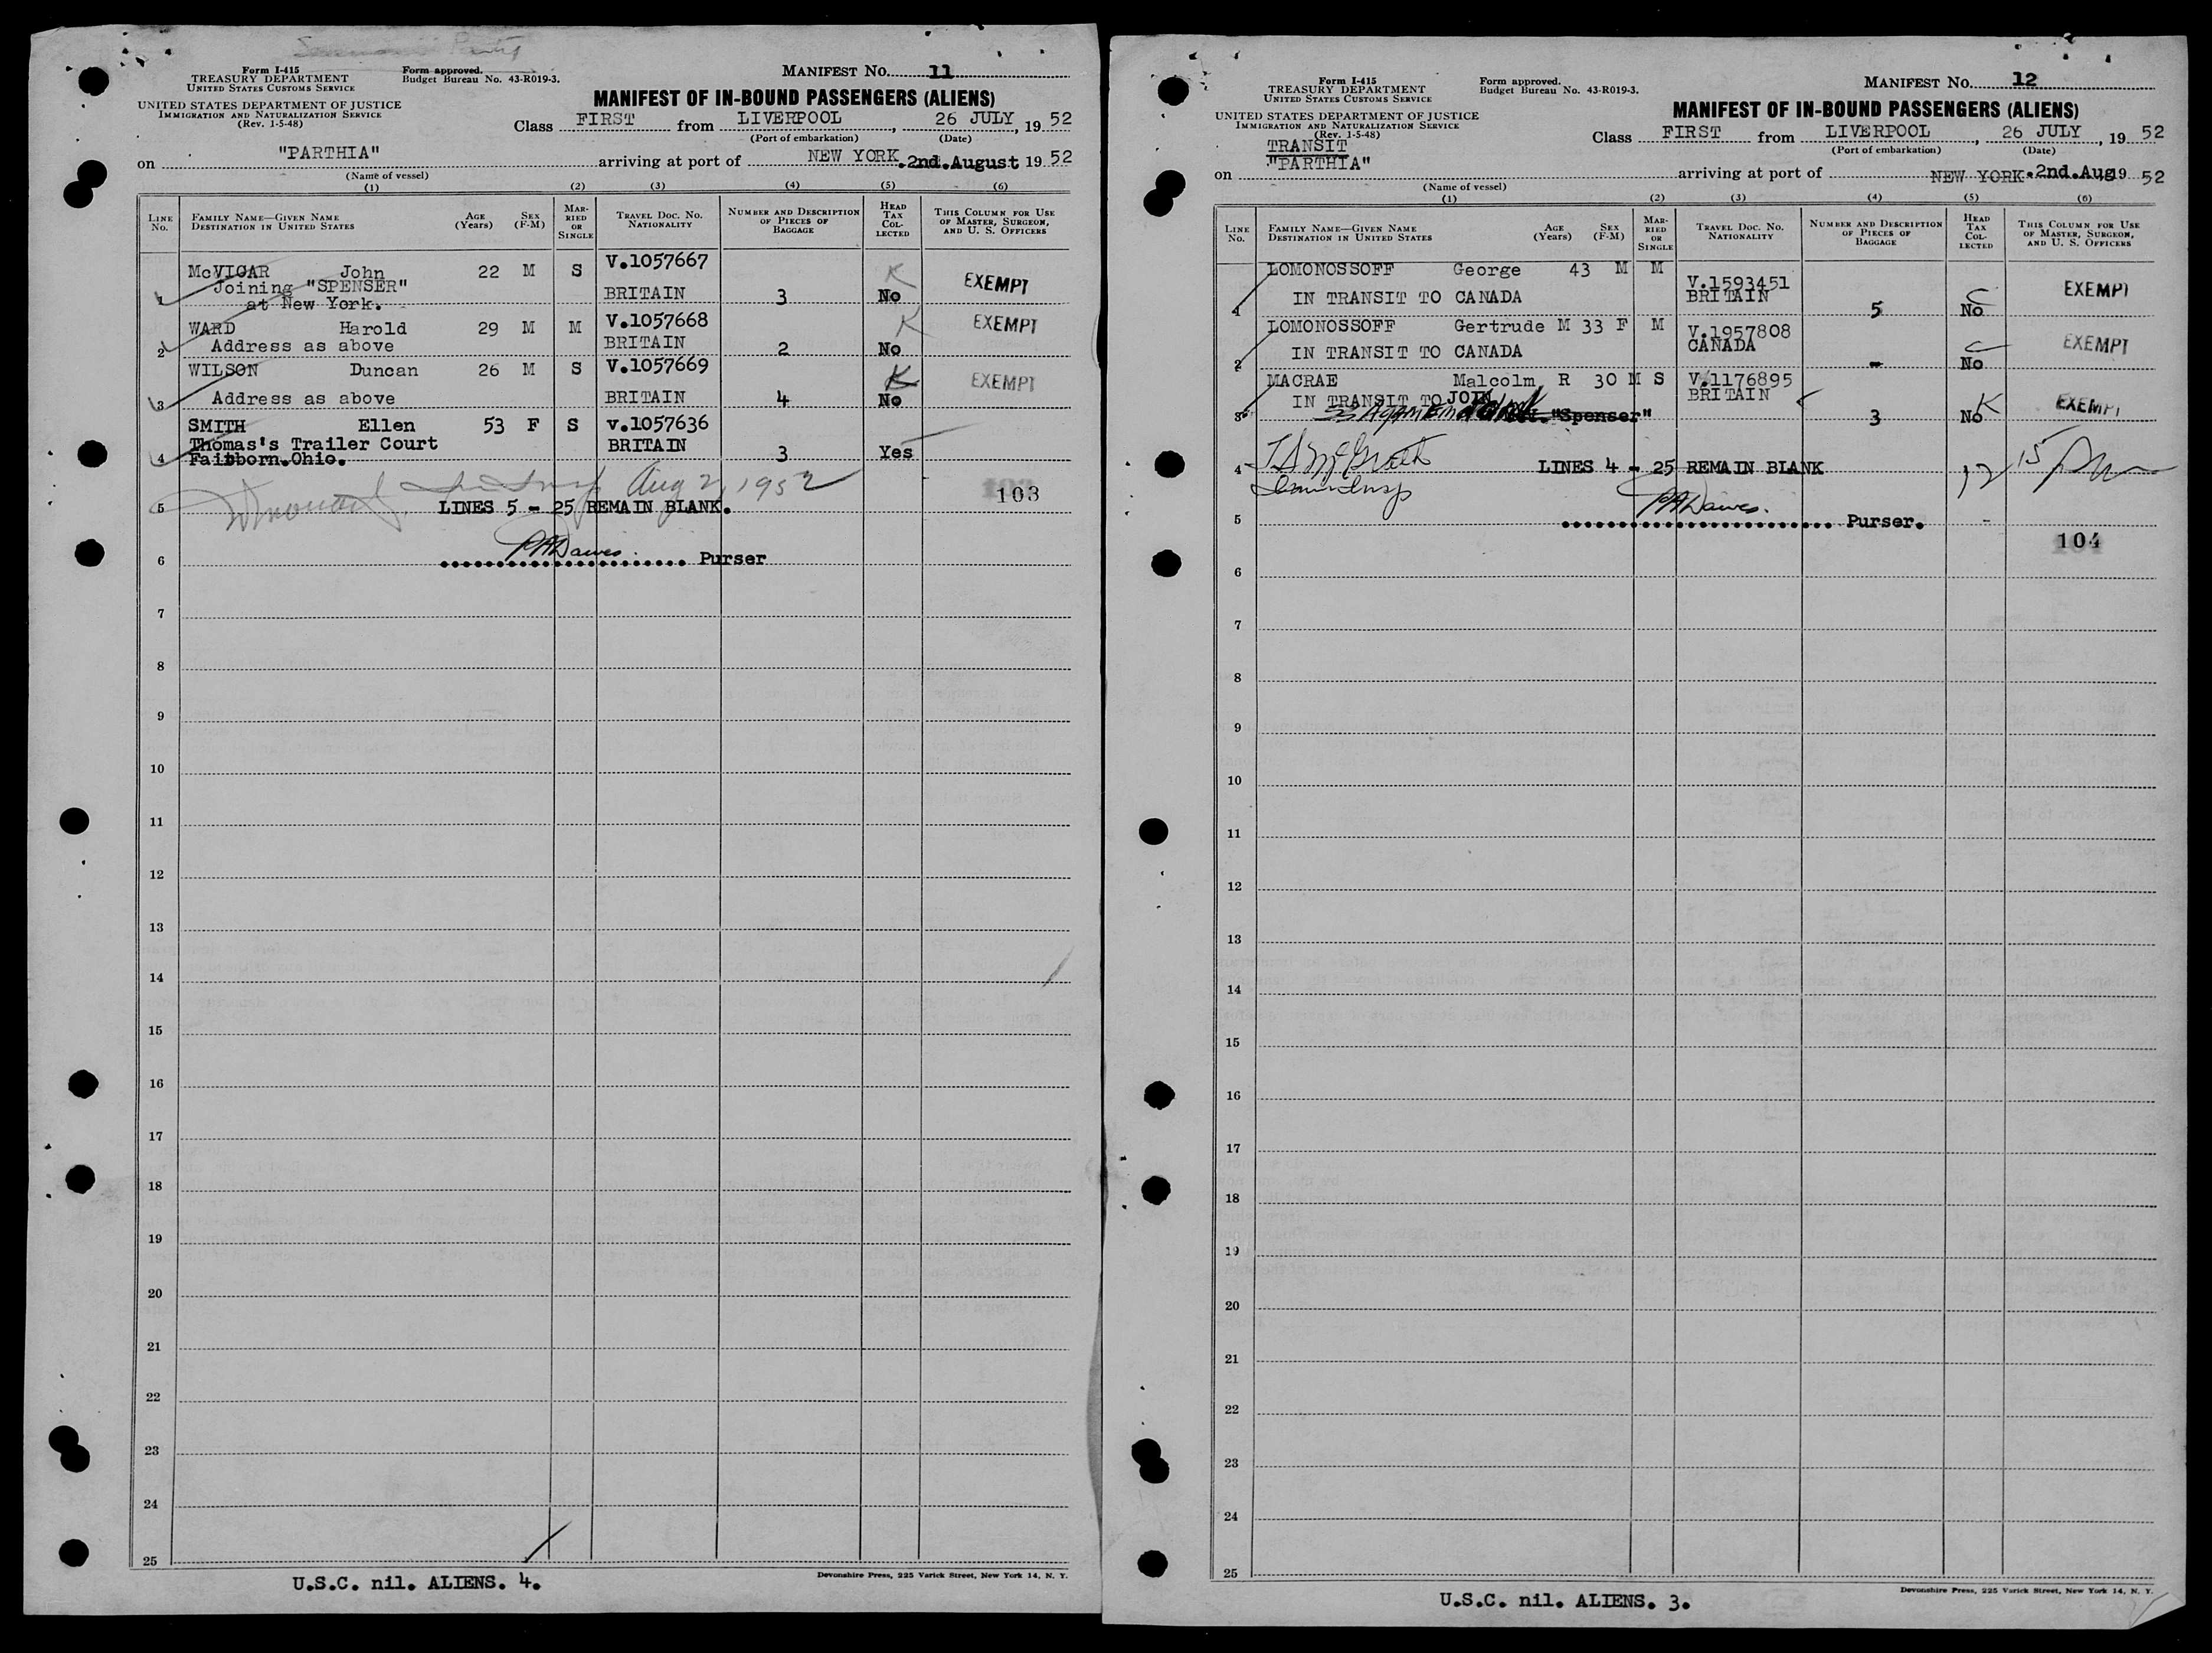 Form I-415
TREASURY DEPARTMENT
UNITED STATES CUSTOMS SERVICE
UNITED STATES DEPARTMENT OF JUSTICE
IMMIGRATION AND NATURALIZATION SERVICE
(Rev. 1-5-48)
Form approved.
Budget Bureau No. 43-R019-3.
MANIFEST No. 11
MANIFEST OF IN-BOUND PASSENGERS (ALIENS)
Class FIRST from LIVERPOOL, 26 JULY, 19 52
(Port of embarkation) (Date)
on "PARTHIA" arriving at port of NEW YORK. 2nd. August 19 52
(Name of vessel)
(1) (2) (3) (4) (5) (6)
LINE No. FAMILY NAME—GIVEN NAME DESTINATION IN UNITED STATES AGE (Years) SEX (F-M) MARRIED OR SINGLE TRAVEL DOC. No. NATIONALITY NUMBER AND DESCRIPTION OF PIECES OF BAGGAGE HEAD TAX COLLECTED THIS COLUMN FOR USE OF MASTER, SURGEON, AND U. S. OFFICERS
1 McVICAR John 22 M S V.1057667 K EXEMPT
Joining "SPENSER"
at New York. BRITAIN 3 No
2 WARD Harold 29 M M V.1057668 K EXEMPT
Address as above BRITAIN 2 No
3 WILSON Duncan 26 M S V.1057669 K EXEMPT
Address as above BRITAIN 4 No
4 SMITH Ellen 53 F S v.1057636
Thomas's Trailer Court BRITAIN 3 Yes
Fairborn.Ohio.
Aug 2, 1952
103
5 LINES 5 - 25 REMAIN BLANK.
PADawes.
6 Purser
7
8
9
10
11
12
13
14
15
16
17
18
19
20
21
22
23
24
25
U.S.C. nil. ALIENS. 4.
Devonshire Press, 225 Varick Street, New York 14, N. Y.
Form I-415
TREASURY DEPARTMENT
UNITED STATES CUSTOMS SERVICE
UNITED STATES DEPARTMENT OF JUSTICE
IMMIGRATION AND NATURALIZATION SERVICE
(Rev. 1-5-48)
Form approved.
Budget Bureau No. 43-R019-3.
MANIFEST No. 12
MANIFEST OF IN-BOUND PASSENGERS (ALIENS)
Class FIRST from LIVERPOOL, 26 JULY, 19 52
(Port of embarkation) (Date)
TRANSIT
on "PARTHIA" arriving at port of NEW YORK. 2nd. Aug 19 52
(Name of vessel)
(1) (2) (3) (4) (5) (6)
LINE No. FAMILY NAME—GIVEN NAME DESTINATION IN UNITED STATES AGE (Years) SEX (F-M) MARRIED OR SINGLE TRAVEL DOC. No. NATIONALITY NUMBER AND DESCRIPTION OF PIECES OF BAGGAGE HEAD TAX COLLECTED THIS COLUMN FOR USE OF MASTER, SURGEON, AND U. S. OFFICERS
1 LOMONOSSOFF George 43 M M V.1593451 EXEMPT
IN TRANSIT TO CANADA BRITAIN 5 No
2 LOMONOSSOFF Gertrude M 33 F M V.1957808 EXEMPT
IN TRANSIT TO CANADA CANADA - No
3 MACRAE Malcolm R 30 M S V.1176895 K EXEMPT
IN TRANSIT TO JOIN BRITAIN
"Spenser" 3 No
4 LINES 4 - 25 REMAIN BLANK
PADawes.
5 Purser.
104
6
7
8
9
10
11
12
13
14
15
16
17
18
19
20
21
22
23
24
25
U.S.C. nil. ALIENS. 3.
Devonshire Press, 225 Varick Street, New York 14, N. Y.